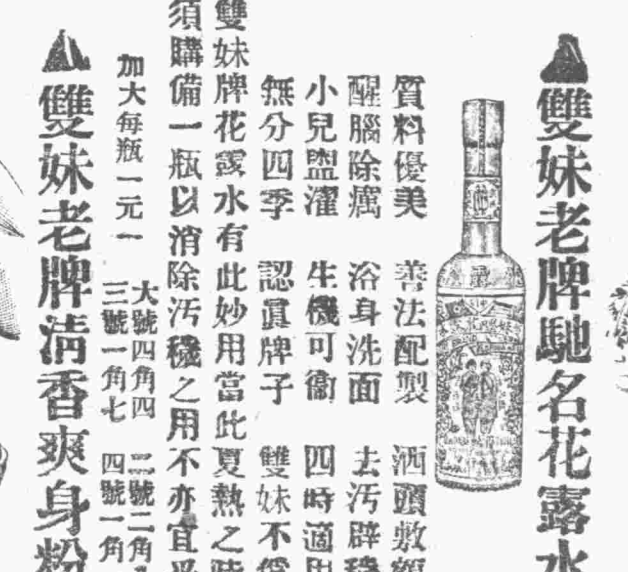 雙妹老牌馳名花露水
質料優美 善法配製 洒頭敷
醒腦除癘 浴身洗面 去汚辟穢
小兒盥濯 生機可衞 四時適用
無分四季 認眞牌子 雙妹不
雙妹牌花露水有此妙用當此夏熱之時
須購備一瓶以消除汚穢之用不亦宜乎
加大每瓶一元一
大號四角四 二號二角
三號一角七 四號一角
雙妹老牌清香爽身粉